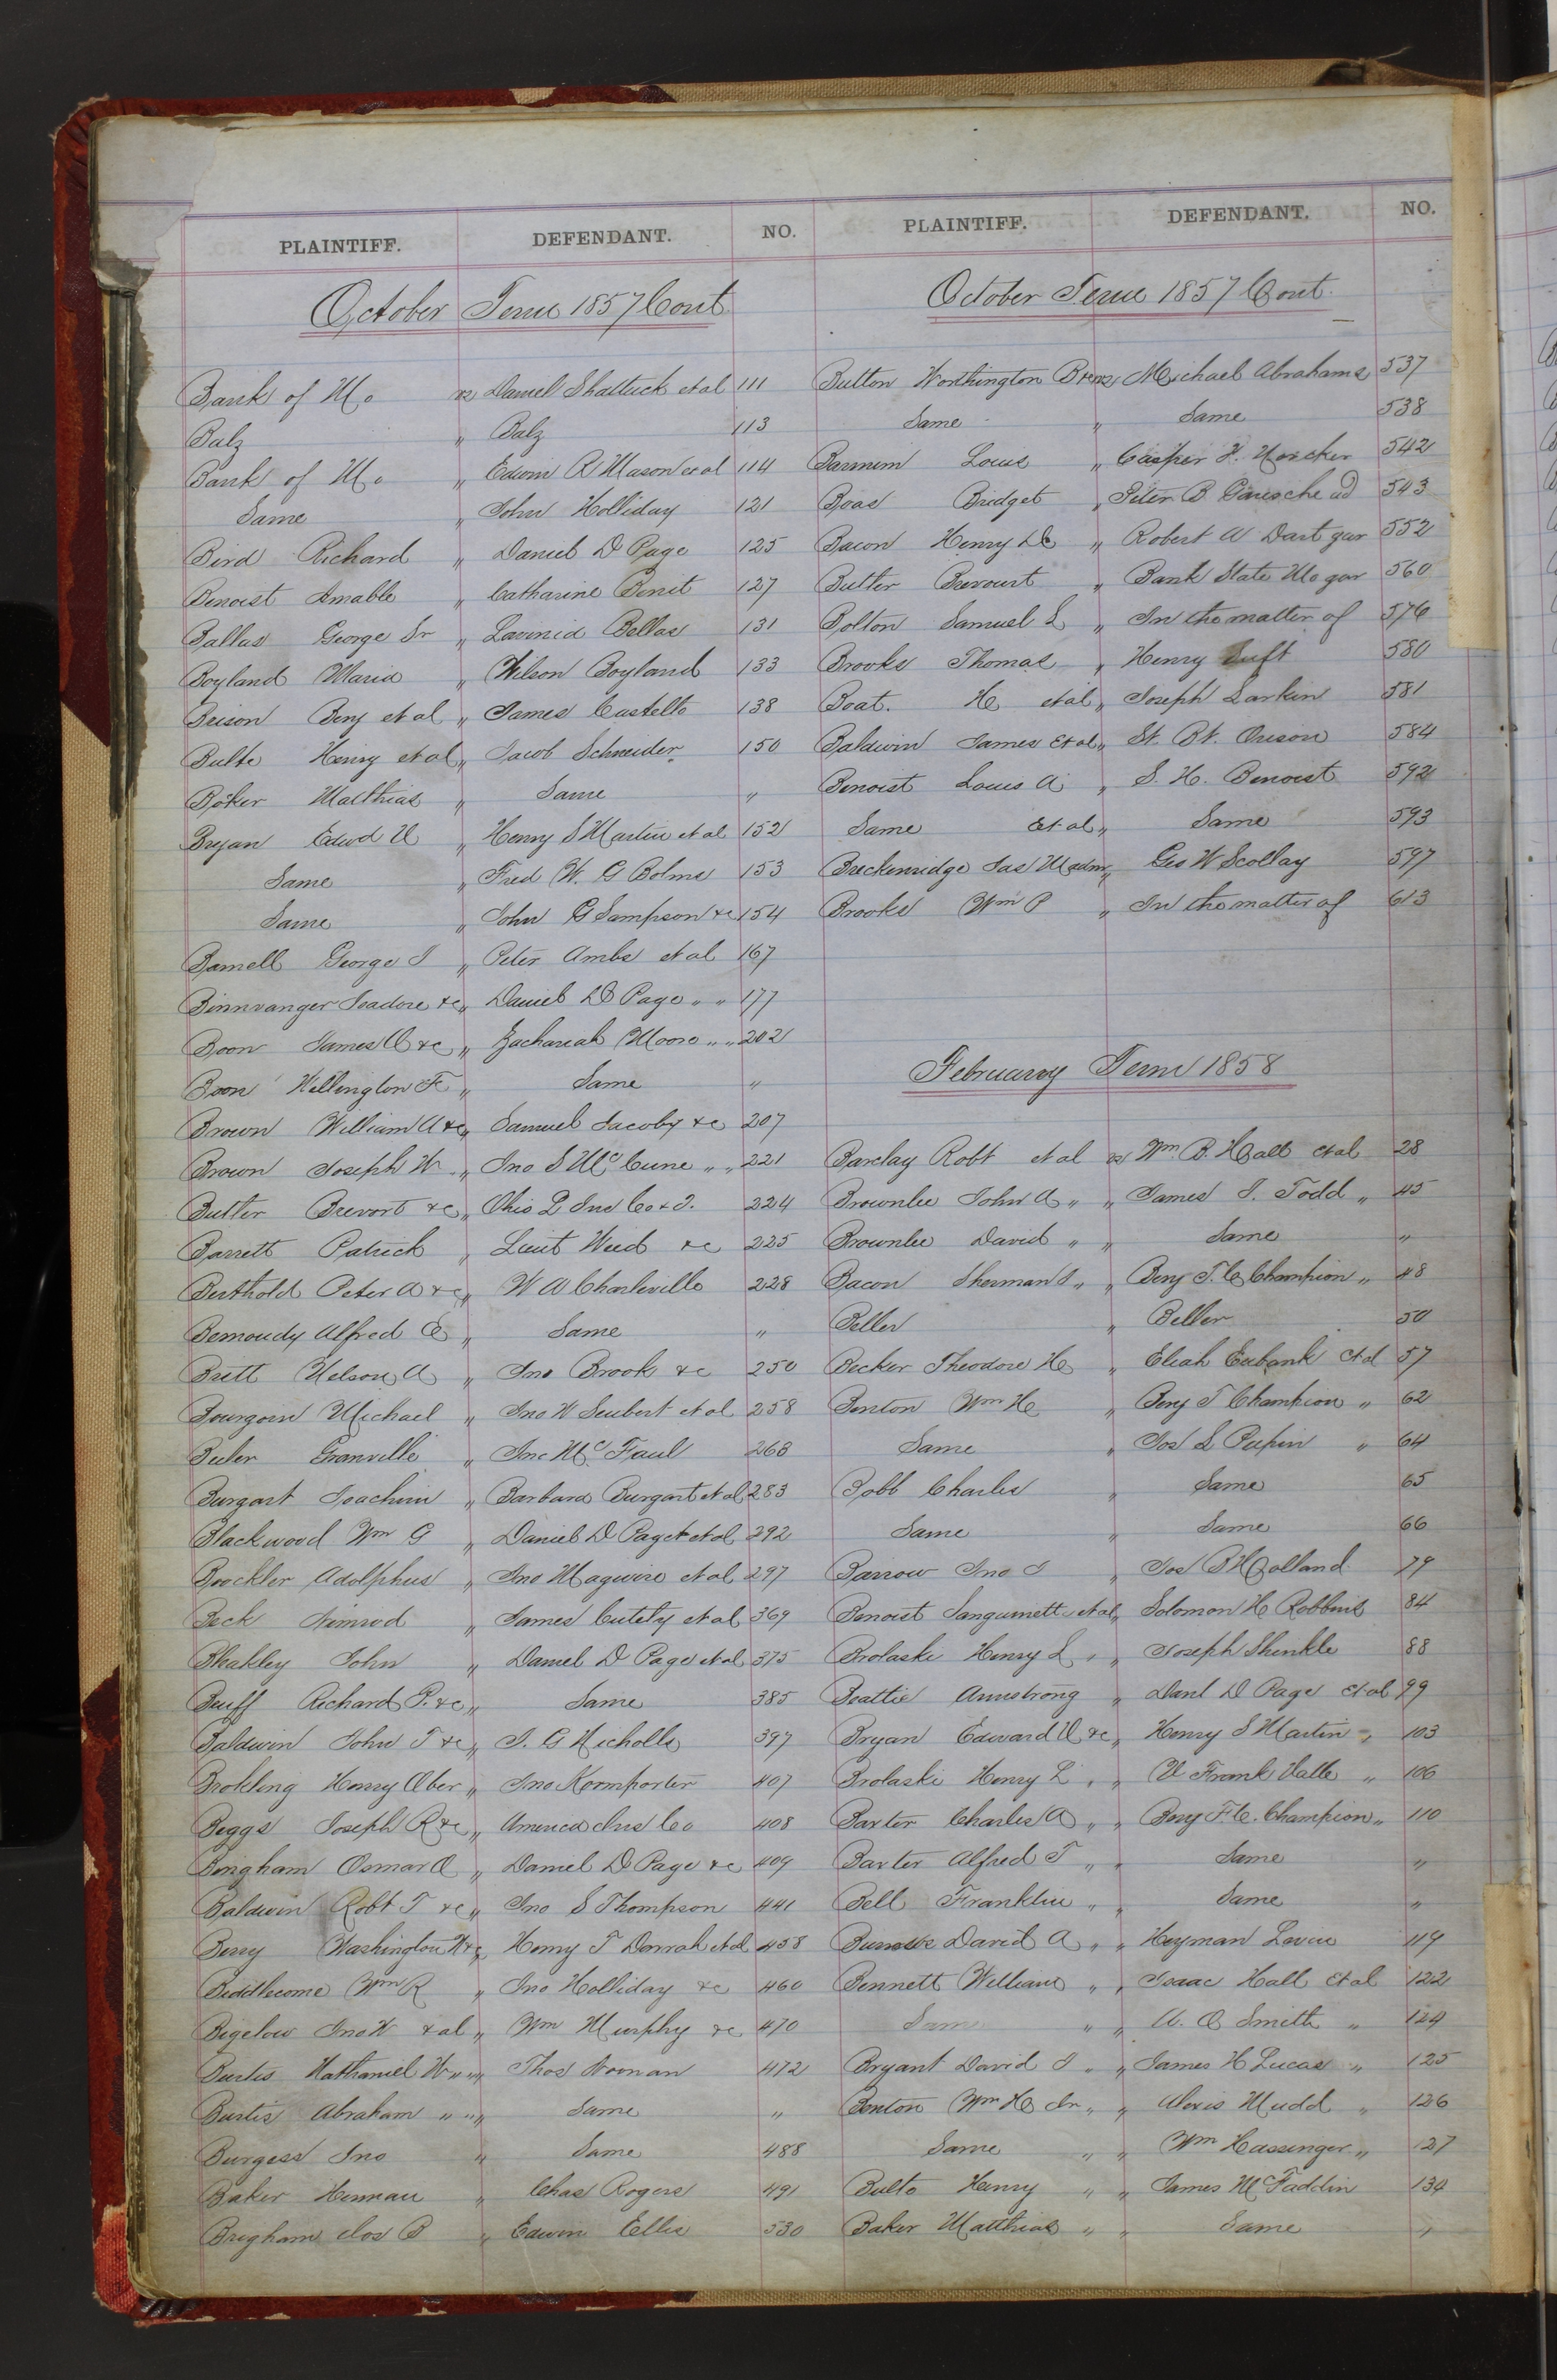 PLAINTIFF. DEFENDANT. NO.
October Term 1857 Cont
Bank of Mo vs Daniel Shattuck et al 111
Balz " Balz 113
Bank of Mo " Edwin R Mason et al 114
Same " John Holliday 121
Bird Richard " Daniel D Page 125
Benoist Amable " Catharine Benit 127
Ballas George Sr " Lavinia Bellas 131
Boyland Maria " Wilson Boyland 133
Brison Benj et al " James Castello 138
Bulte Henry et al " Jacob Schneider 150
Baker Matthias " Same "
Bryan Edwd U " Henry S Martin et al 152
Same " Fred W. G Bolms 153
Same " John G Sampson &c 154
Barnell George I " Peter Ambs et al 167
Binnvanger Isadore &c " Daniel D Page " " 177
Boon James &c " Zachariah Moore " " 202
Boon Wellington F " Same "
Brown William A &c " Samuel Jacoby &c 207
Brown Joseph W " Jno S McCune " " 221
Butler Brevort &c " Ohio L Ins Co & T. 224
Barrett Patrick " Lieut Weed &c 225
Berthold Peter A &c " W A Charleville 228
Bemoudy Alfred E " Same "
Brett Nelson A " Jno Brook &c 250
Bourgoin Michael " Jno W Seubert et al 258
Buler Granville " Jno McFaul 268
Burgart Joachim " Barbara Burgart et al 283
Blackwood Wm G " Daniel D Page et al 292
Boockler Adolphus " Jno Maguire et al 297
Beck Nimrod " James Cutely et al 369
Blakley John " Daniel D Page et al 375
Buff Richard P. &c " Same 385
Baldwin John T &c " J. G Nicholls 397
Brokling Henry Ober " Jno Kormporter 407
Beggs Joseph R &c " America Ins Co 408
Bingham Osmar O " Daniel D Page &c 409
Baldwin Robt T &c " Jno S Thompson 441
Berry Washington W &c " Henry T Darrah et al 458
Biddlecome Wm R " Jno Holliday &c 460
Bigelow Jno W & al " Wm Murphy &c 470
Burtis Nathaniel W " " " Thos Noonan 472
Burtis Abraham " " " Same "
Burgess Jno " Same 488
Baker Herman " Chas Rogers 491
Brigham Jos B " Edwin Ellis 530
PLAINTIFF. DEFENDANT. NO.
October Term 1857 Cont.
Button Worthington vs Michael Abrahams 537
Same " Same 538
Barnum Louis " Casper H. 542
Boas Bridget " Peter B Garesche ad 543
Bacon Henry D " Robert A Dart gar 552
Butler Brevourt " Bank State Mo gar 560
Bolton Samuel L " In the matter of 576
Brooks Thomas " Henry Luft 580
Boat. H et al " Joseph Larkin 581
Baldwin James et al " St. Bt. Orison 584
Benoist Louis A " S. H. Benoist 592
Same et al " Same 593
Breckenridge Jas M adm " Geo W Scollay 597
Brooks Wm P " In the matter of 613
February Term 1858
Barclay Robt et al vs Wm. B. Hall et al 28
Brownlee John A " " James S. Todd " 45
Brownlee David " " Same "
Bacon Sherman I " " Benj F. C Champion " 48
Beller " Beller 50
Becker Theodore H " Eliah Eubank et al 57
Benton Wm H " Benj F Champion " 62
Same " Jos L Papin " 64
Bobb Charles " Same 65
Same " Same 66
Barrow Jno I " Jos B Holland 79
Benoist Sangumett et al " Solomon H Robbins 84
Brolaski Henry L " " Joseph Shinkle 88
Beattie Armstrong " Danl D Page et al 99
Bryan Edward U &c " Henry S Martin " 103
Brolaski Henry L " " U Frank Valle " 106
Baxter Charles A " " Benj F. C. Champion " 110
Baxter Alfred T " " Same "
Bell Franklin " " Same "
David A " " Heyman Levin 119
Bennett William " " Isaac Hall et al 122
Same " " A. O Smith " 124
Bryant David I " " James H Lucas " 125
Benton Wm H Jr " " Alexis Mudd " 126
Same " " Wm Hassinger " 127
Bulte Henry " " James McFaddin 134
Baker Matthias " " Same "